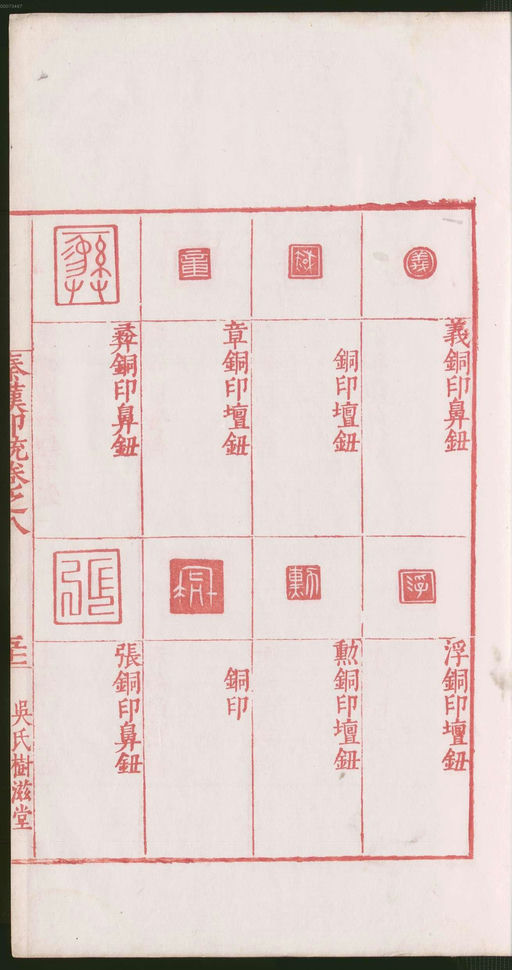 義銅印鼻鈕
銅印壇鈕
章銅印壇鈕
彞銅印鼻鈕
浮銅印壇鈕
勲銅印壇鈕
銅印
張銅印鼻鈕
秦漢印統卷之八
吳氏樹滋堂
義
浮
勲
張
00073447